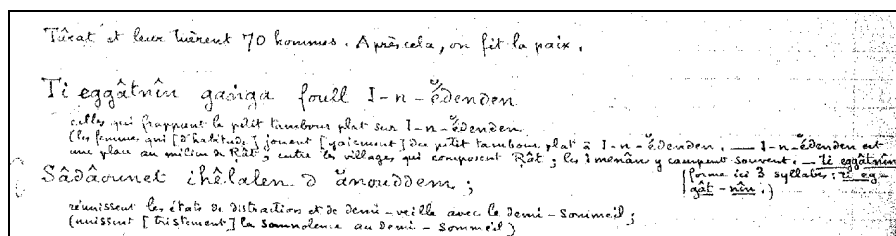 Târat et leur tuèrent 70 hommes. Après cela, on fit la paix.
Ti eggâtnîn ganga foull I-n-ĕ́denden
celles qui frappent le petit tambour plat sur I-n-ĕ́denden
(les femmes qui [d'habitude] jouent [gaiement] du petit tambour plat à I-n-ĕ́denden. — I-n-ĕ́denden est
une place au milieu de Rât, entre les villages qui composent Rât; les Imenân y campent souvent. — ti eggâtnîn
forme ici 3 syllabes: ti eg-
gât-nîn.)
Sâdâounet ihêlalen d ănouddem;
réunissent les états de distraction et de demi-veille avec le demi-sommeil;
(unissent [tristement] la somnolence au demi-sommeil)